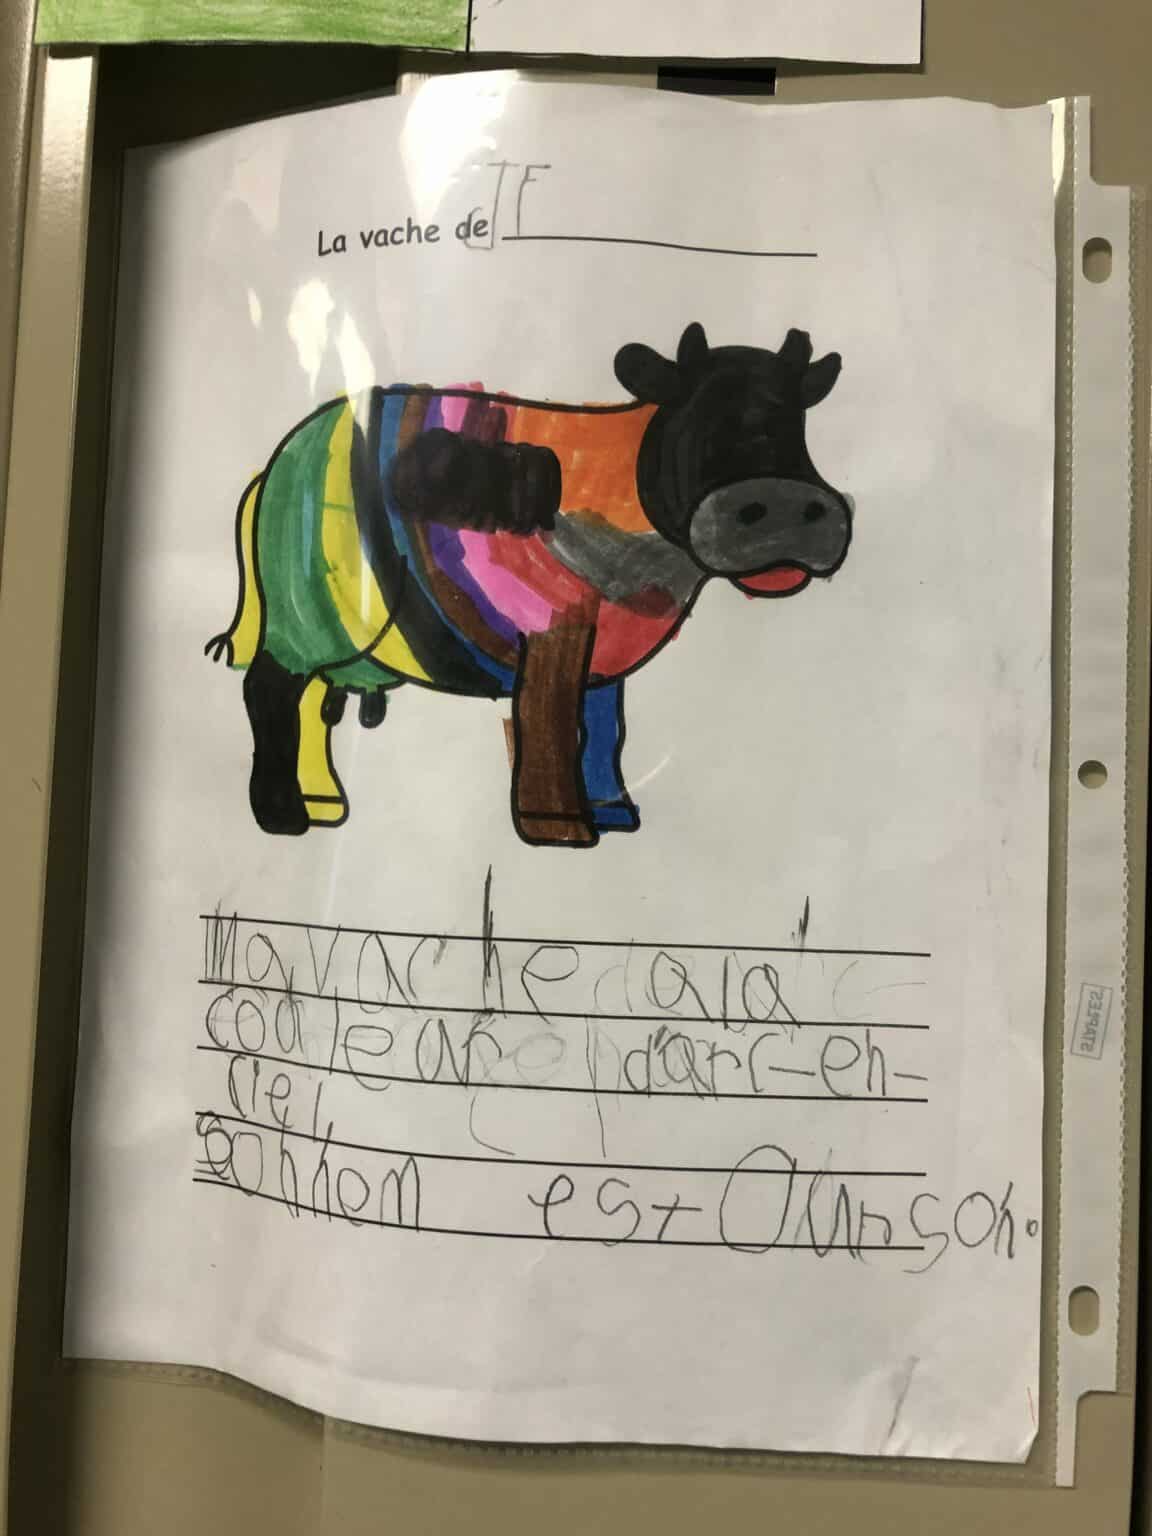 La vache de JF
Ma vache a la
couleur d'arc-en-
ciel,
son nom est Ourson.
STAPLES